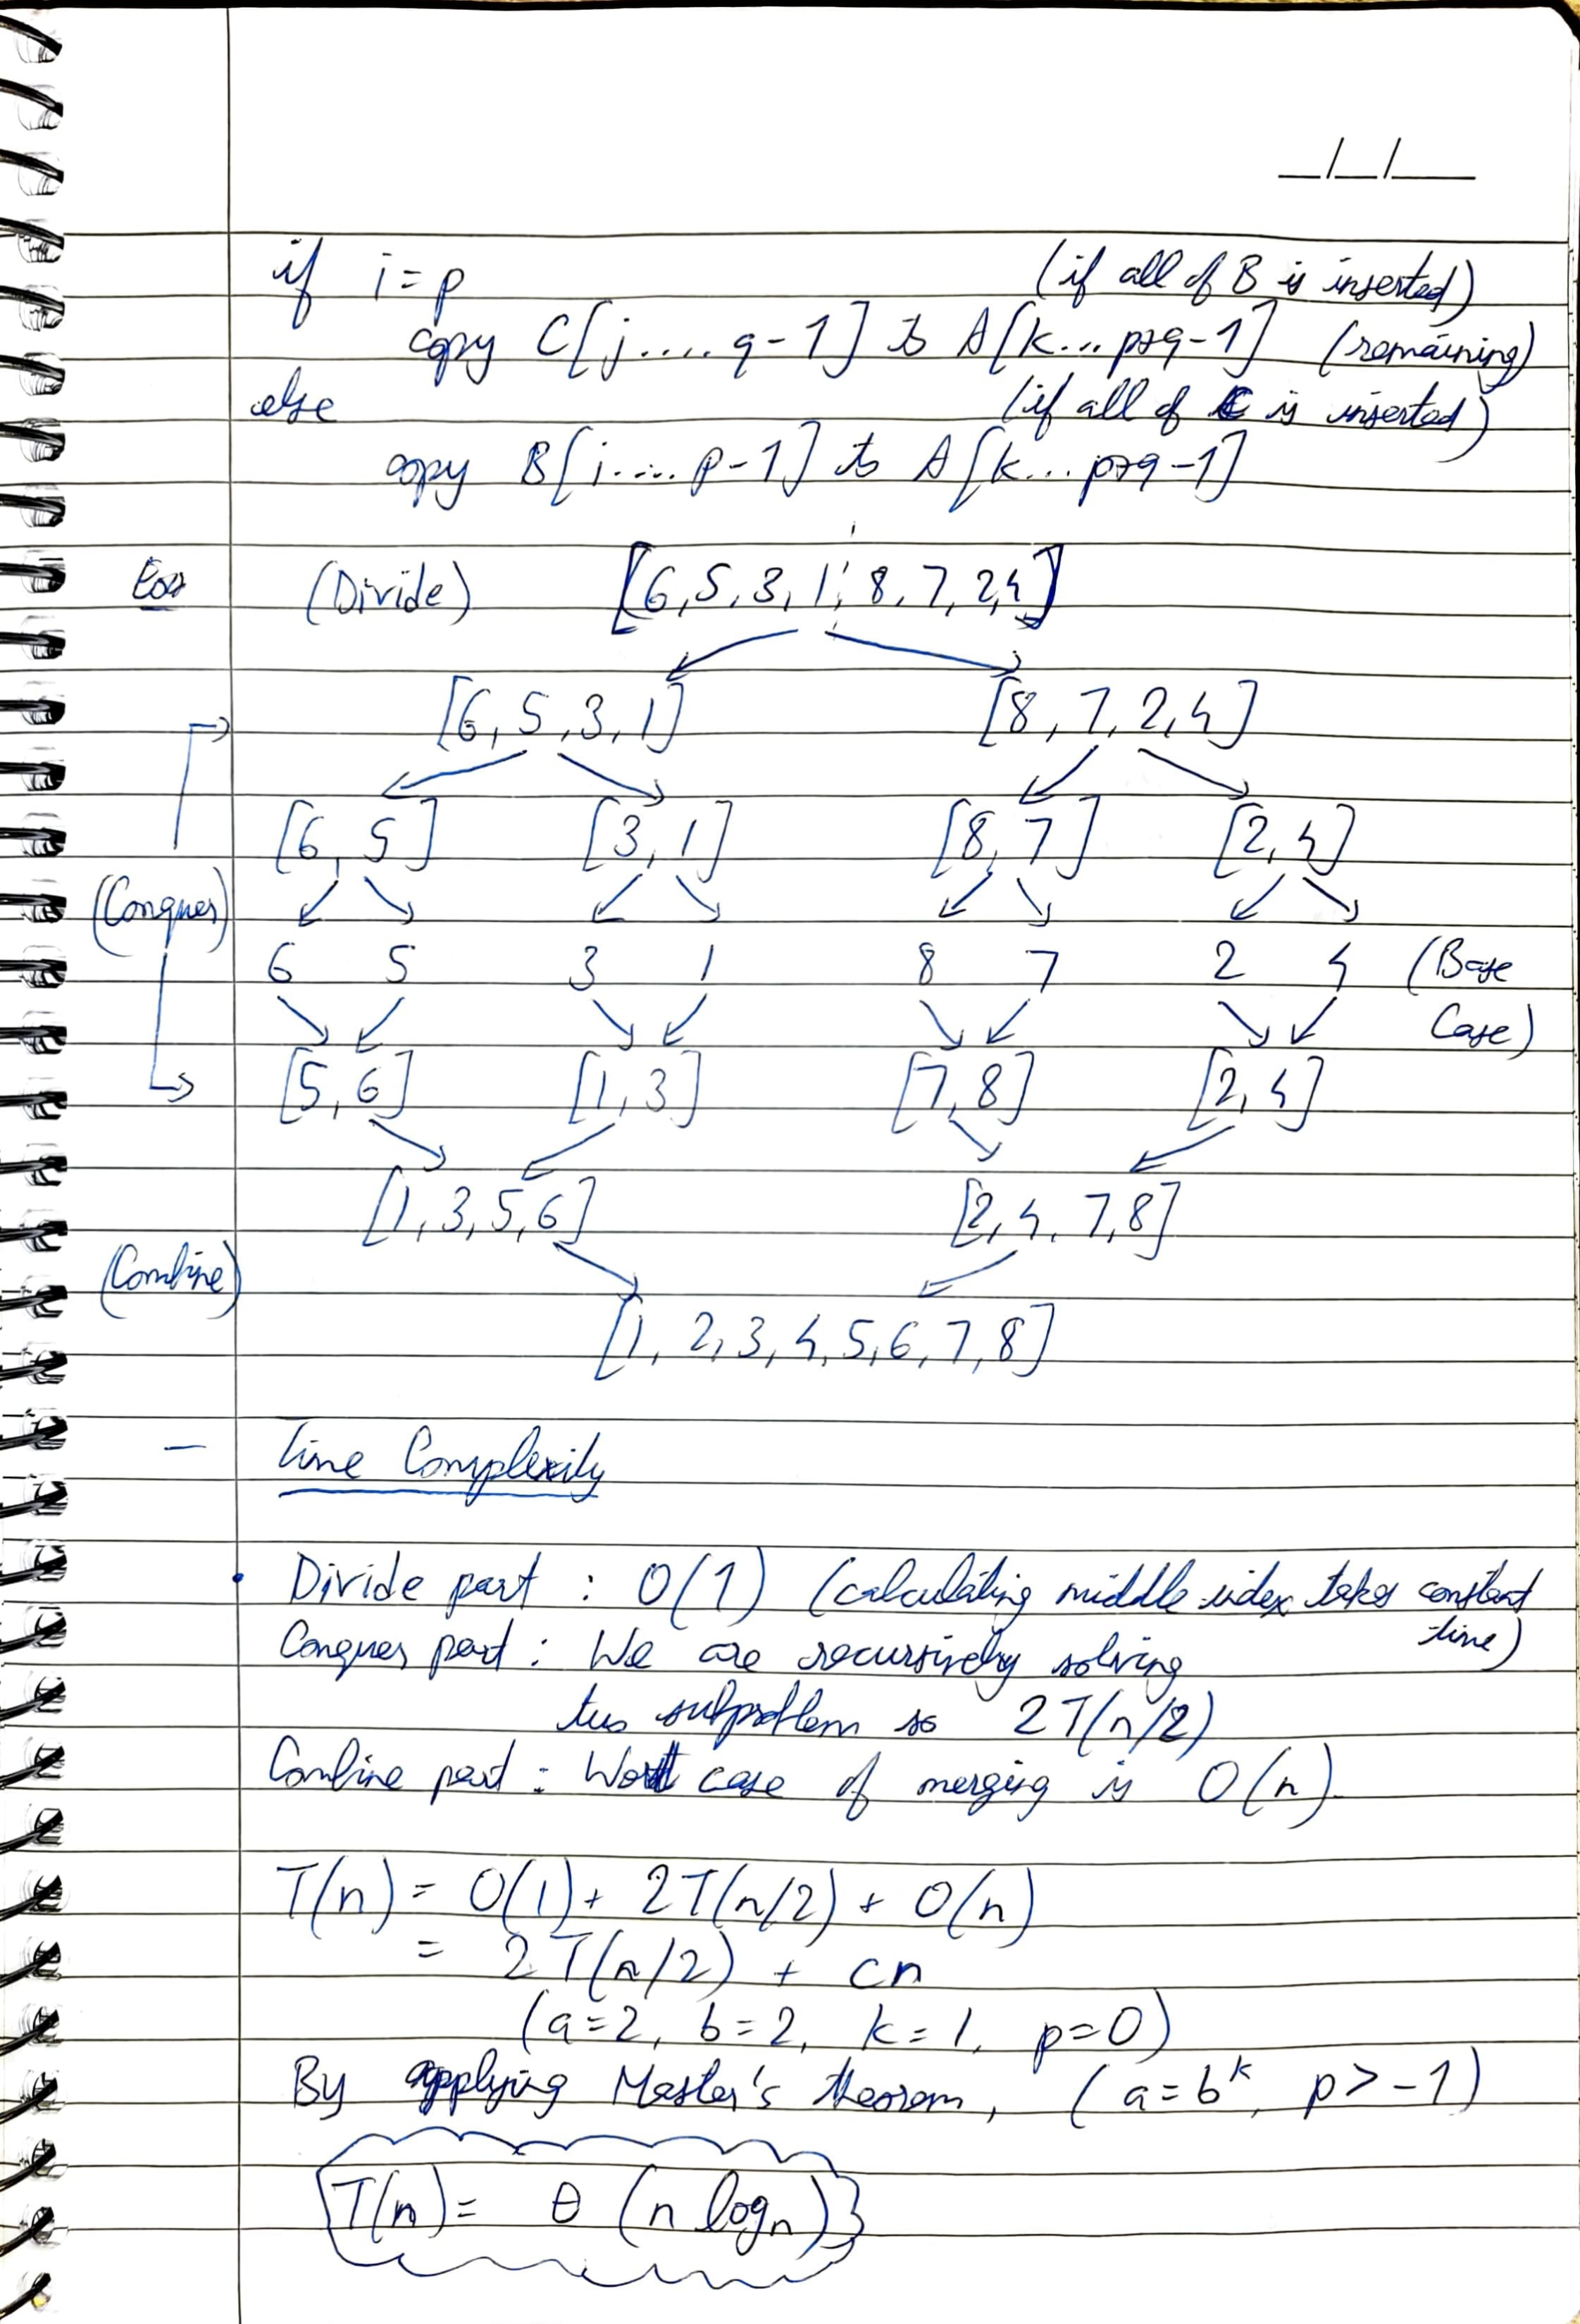 __/__/____
if i = p (if all of B is inserted)
copy C[j.... q-1] to A[k... p+q-1] (remaining)
else (if all of C is inserted)
copy B[i.... p-1] to A[k... p+q-1]
(Divide) [6, 5, 3, 1, 8, 7, 2, 4]
[6, 5, 3, 1] [8, 7, 2, 4]
[6, 5] [3, 1] [8, 7] [2, 4]
(Conquer)
6 5 3 1 8 7 2 4 (Base
Case)
[5, 6] [1, 3] [7, 8] [2, 4]
[1, 3, 5, 6] [2, 4, 7, 8]
(Combine)
[1, 2, 3, 4, 5, 6, 7, 8]
- Time Complexity
• Divide part : O(1) (calculating middle index takes constant
time)
Conquer part : We are recursively solving
two subproblem so 2T(n/2)
Combine part : Worst case of merging is O(n).
T(n) = O(1) + 2T(n/2) + O(n)
= 2T(n/2) + cn
(a=2, b=2, k=1, p=0)
By applying Master's theorem, (a=bᵏ, p>-1)
T(n) = θ (n log n)